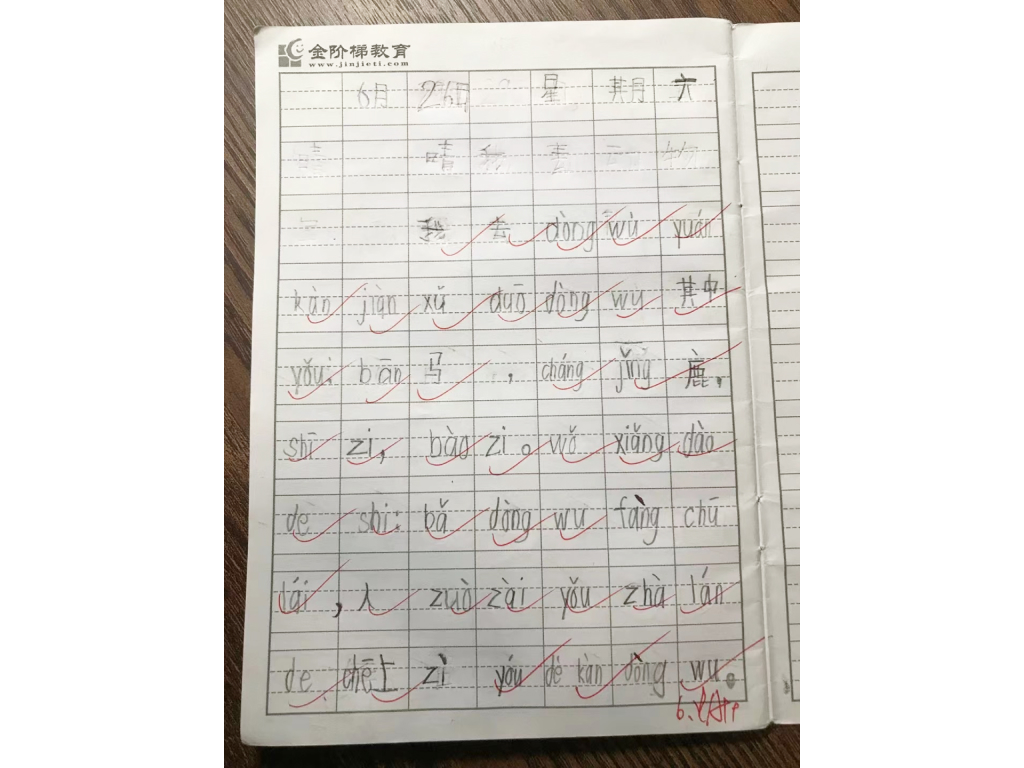 金阶梯教育
www.jinjieti.com
6月 26日 星 期 六
晴 我 去
我 去 dòng wù yuán
kàn jiàn xǔ duō dòng wù 其中
yǒu: bān 马 , cháng jǐng 鹿,
shī zi, bào zi。 wǒ xiǎng dào
de shi: bǎ dòng wu fàng chū
lái , 人 zuò zài yǒu zhà lán
de chē上 zì yóu de kàn dòng wu。